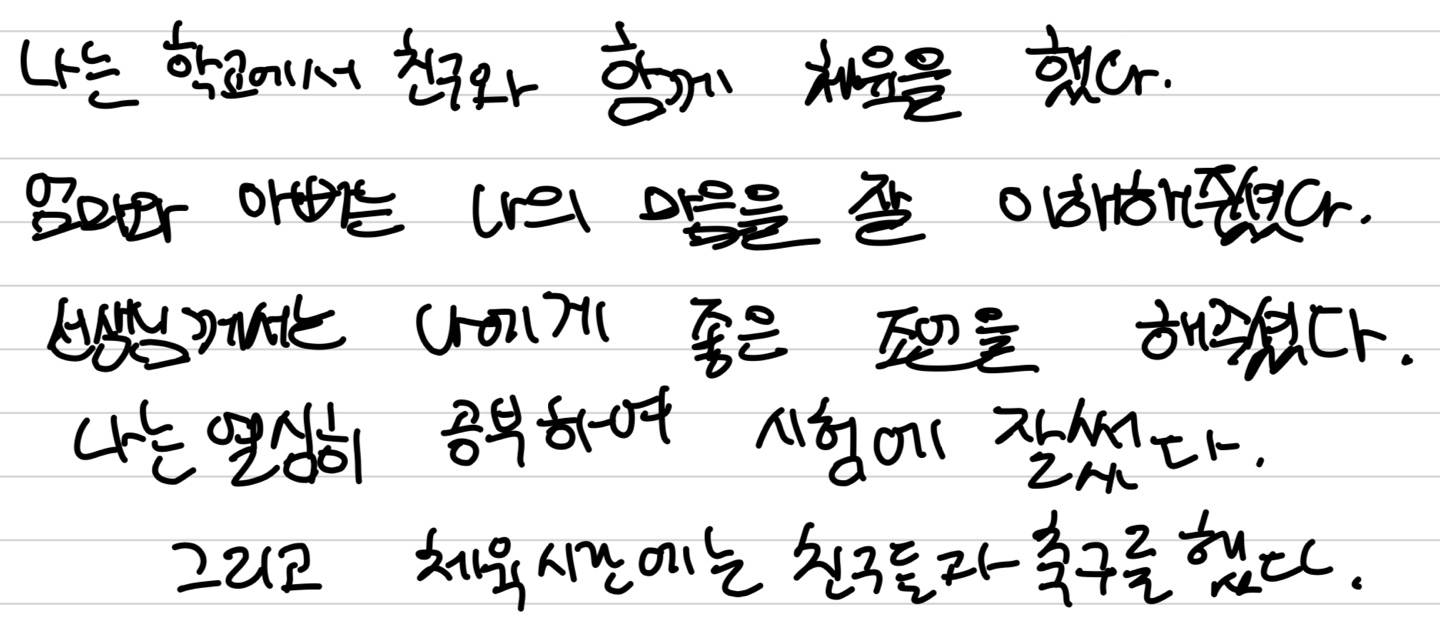 나는 학교에서 친구와 함께 체육을 했다.
엄마와 아빠는 나의 마음을 잘 이해해주셨다.
선생님께서는 나에게 좋은 조언을 해주셨다.
나는 열심히 공부하여 시험에 잘썼다.
그리고 체육시간에는 친구들과 축구를 했다.